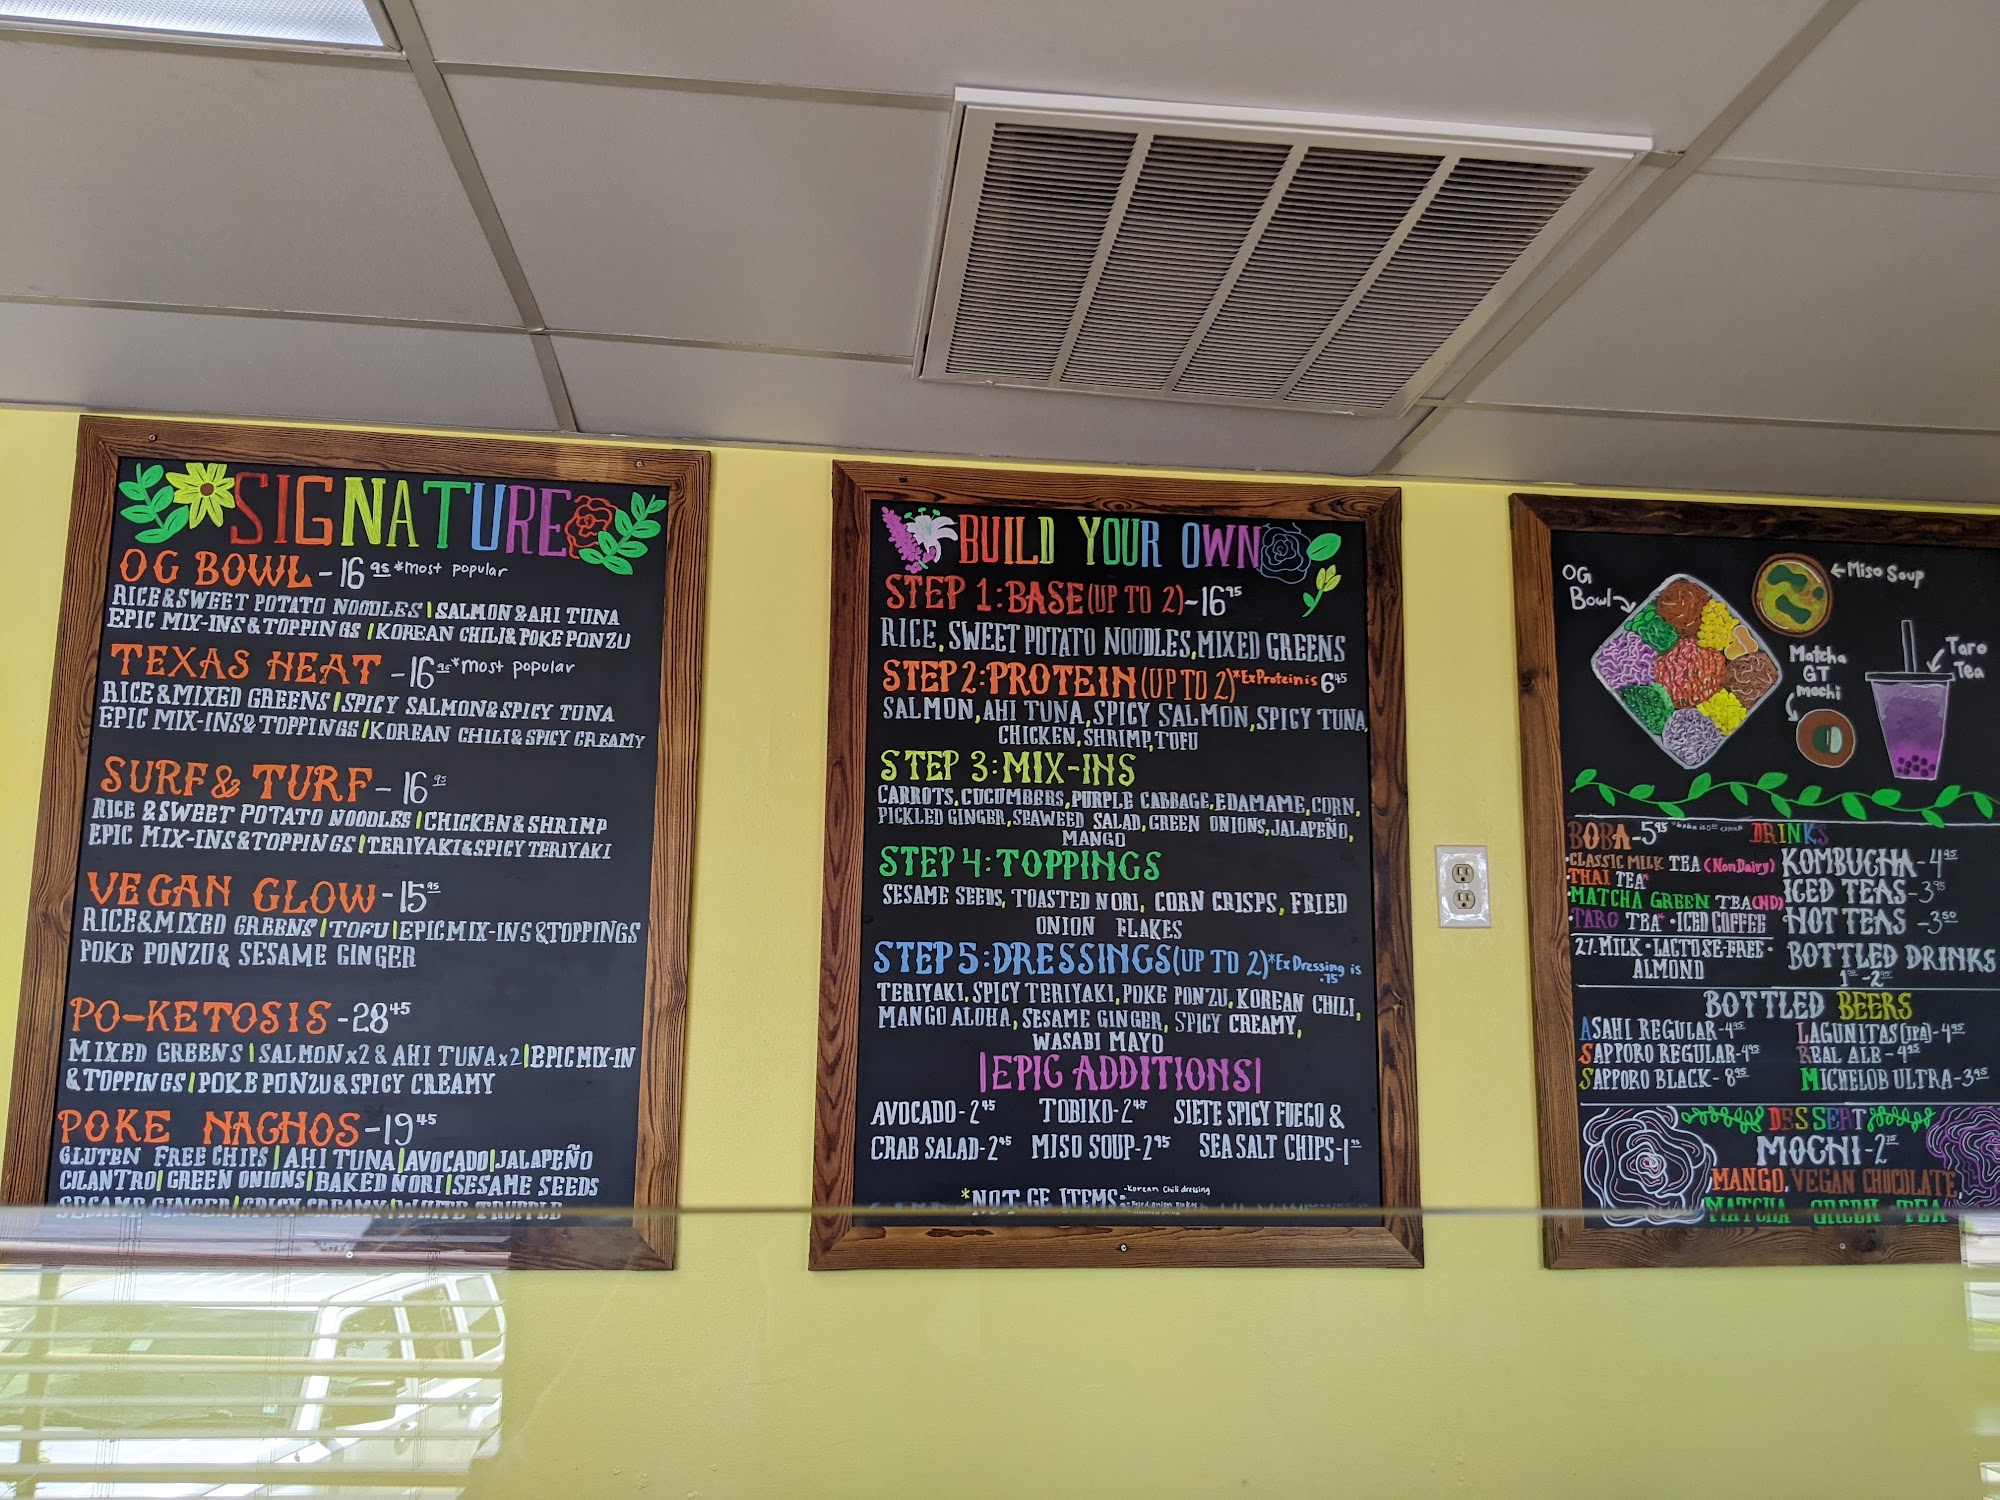 SIGNATURE
OG BOWL - 16 95 *most popular
RICE & SWEET POTATO NOODLES | SALMON & AHI TUNA
EPIC MIX-INS & TOPPINGS | KOREAN CHILI & POKE PONZU
TEXAS HEAT - 16 95 *most popular
RICE & MIXED GREENS | SPICY SALMON & SPICY TUNA
EPIC MIX-INS & TOPPINGS | KOREAN CHILI & SPICY CREAMY
SURF & TURF - 16 95
RICE & SWEET POTATO NOODLES | CHICKEN & SHRIMP
EPIC MIX-INS & TOPPINGS | TERIYAKI & SPICY TERIYAKI
VEGAN GLOW - 15 95
RICE & MIXED GREENS | TOFU | EPIC MIX-INS & TOPPINGS
POKE PONZU & SESAME GINGER
PO-KETOSIS - 28 45
MIXED GREENS | SALMON x2 & AHI TUNA x2 | EPIC MIX-IN
& TOPPINGS | POKE PONZU & SPICY CREAMY
POKE NACHOS - 19 45
GLUTEN FREE CHIPS | AHI TUNA | AVOCADO | JALAPEÑO
CILANTRO | GREEN ONIONS | BAKED NORI | SESAME SEEDS
SESAME GINGER | SPICY CREAMY | WHITE TRUFFLE
BUILD YOUR OWN
STEP 1: BASE (UP TO 2) - 16 95
RICE, SWEET POTATO NOODLES, MIXED GREENS
STEP 2: PROTEIN (UP TO 2) *Ex Protein is 6 45
SALMON, AHI TUNA, SPICY SALMON, SPICY TUNA,
CHICKEN, SHRIMP, TOFU
STEP 3: MIX-INS
CARROTS, CUCUMBERS, PURPLE CABBAGE, EDAMAME, CORN,
PICKLED GINGER, SEAWEED SALAD, GREEN ONIONS, JALAPEÑO,
MANGO
STEP 4: TOPPINGS
SESAME SEEDS, TOASTED NORI, CORN CRISPS, FRIED
ONION FLAKES
STEP 5: DRESSINGS (UP TO 2) *Ex Dressing is
.75
TERIYAKI, SPICY TERIYAKI, POKE PONZU, KOREAN CHILI,
MANGO ALOHA, SESAME GINGER, SPICY CREAMY,
WASABI MAYO
|EPIC ADDITIONS|
AVOCADO - 2 45 TOBIKO - 2 45 SIETE SPICY FUEGO &
CRAB SALAD - 2 45 MISO SOUP - 2 95 SEA SALT CHIPS - 1
*NOT GF ITEMS: - Korean Chili dressing
- Fried onion
OG
Bowl
Miso Soup
Matcha
GT
mochi
Taro
Tea
BOBA - 5 95 DRINKS
• CLASSIC MILK TEA (Non Dairy)
• THAI TEA*
• MATCHA GREEN TEA (ND)
• TARO TEA* • ICED COFFEE
2% MILK • LACTOSE-FREE •
ALMOND
KOMBUCHA - 4 95
ICED TEAS - 3 95
HOT TEAS - 3 50
BOTTLED DRINKS
1 50 - 2 95
BOTTLED BEERS
ASAHI REGULAR - 4 95
SAPPORO REGULAR - 4 95
SAPPORO BLACK - 8 95
LAGUNITAS (IPA) - 4 95
REAL ALE - 4 95
MICHELOB ULTRA - 3 95
DESSERT
MOCHI - 2 15
MANGO, VEGAN CHOCOLATE,
MATCHA GREEN TEA